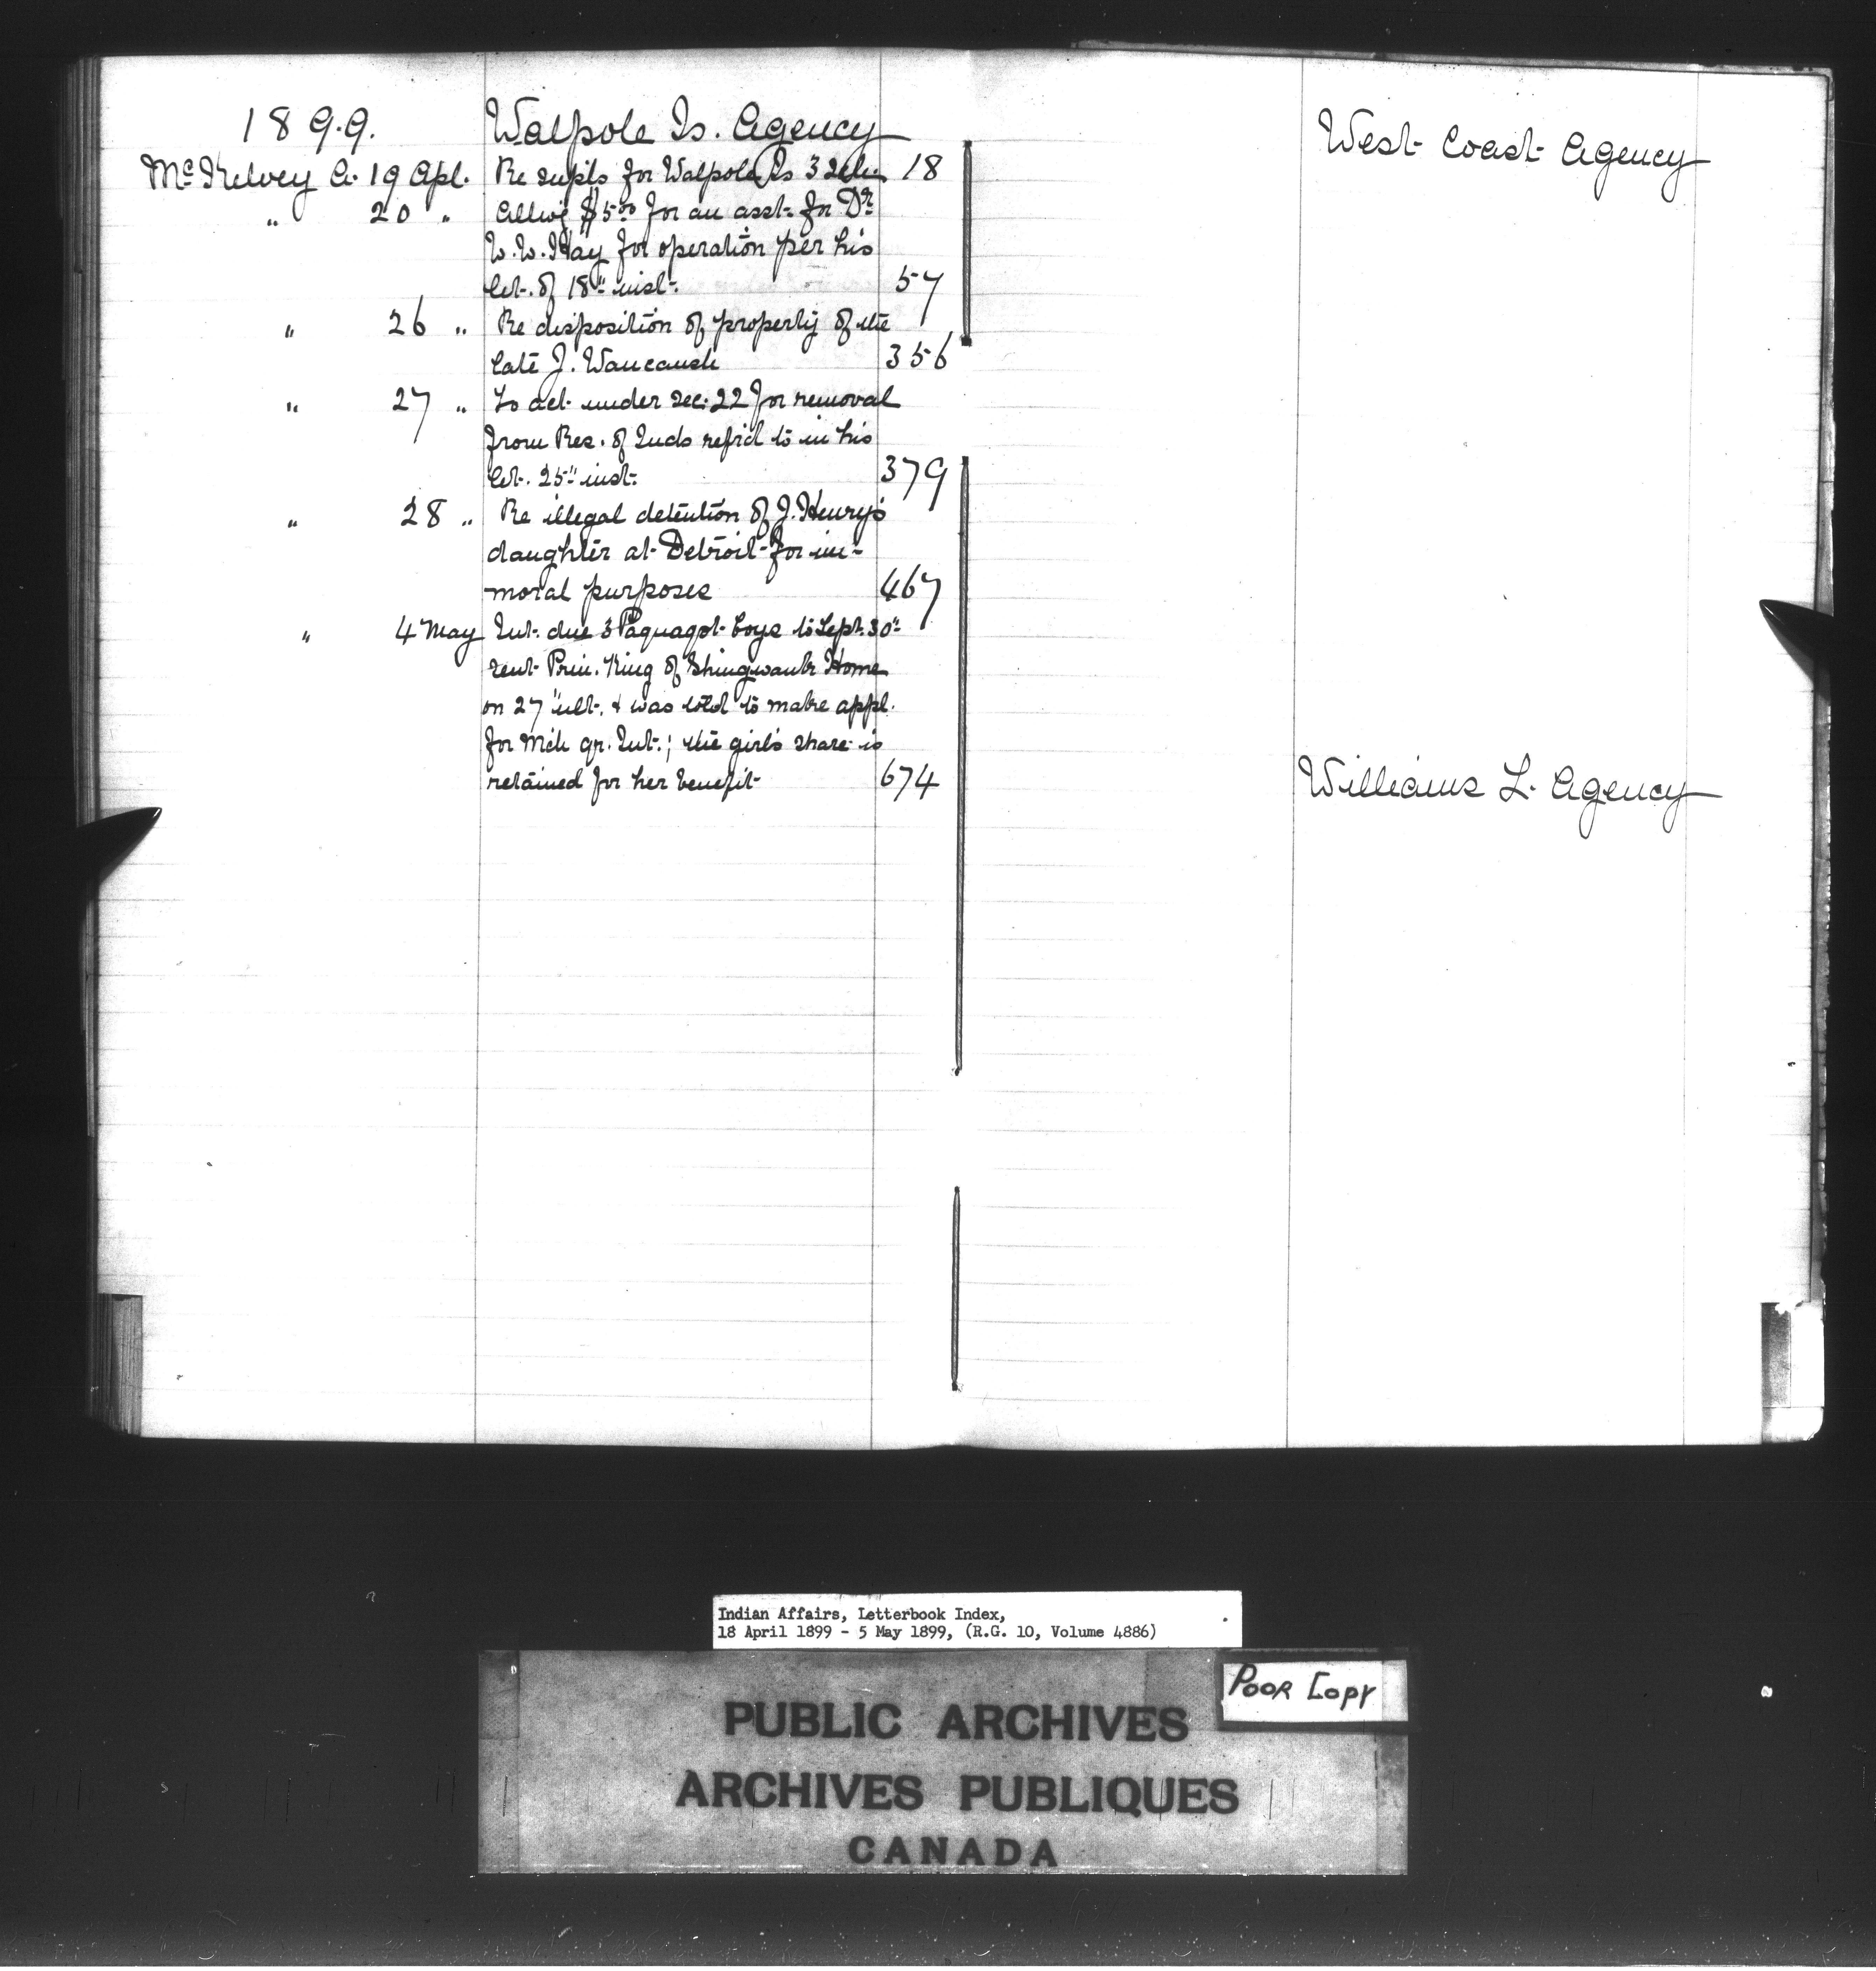 1899.
Walpole Is. Agency
McKelvey A. 19 Apl. Re supls for Walpole Is 3 Sch. 18
" 20 " Allwg $5.00 for an asst. for Dr.
W.W. Hay for operation per his
let. of 18" inst. 57
" 26 " Re disposition of property of the
late J. Waucaush 356
" 27 " To act under sec. 22 for removal
from Res. of Inds refrd to in his
let. 25" inst. 379
" 28 " Re illegal detention of J. Henry's
daughter at Detroit for im-
moral purposes 467
" 4 May Int. due 3 Paquagot boys to Sept. 30"
sent Prin. King of Shingwauk Home
on 27" ult. & was told to make appl.
for Mch qr. Int.; the girl's share is
retained for her benefit 674
West Coast Agency
Williams L. Agency
Indian Affairs, Letterbook Index,
18 April 1899 - 5 May 1899, (R.G. 10, Volume 4886)
POOR COPY
PUBLIC ARCHIVES
ARCHIVES PUBLIQUES
CANADA